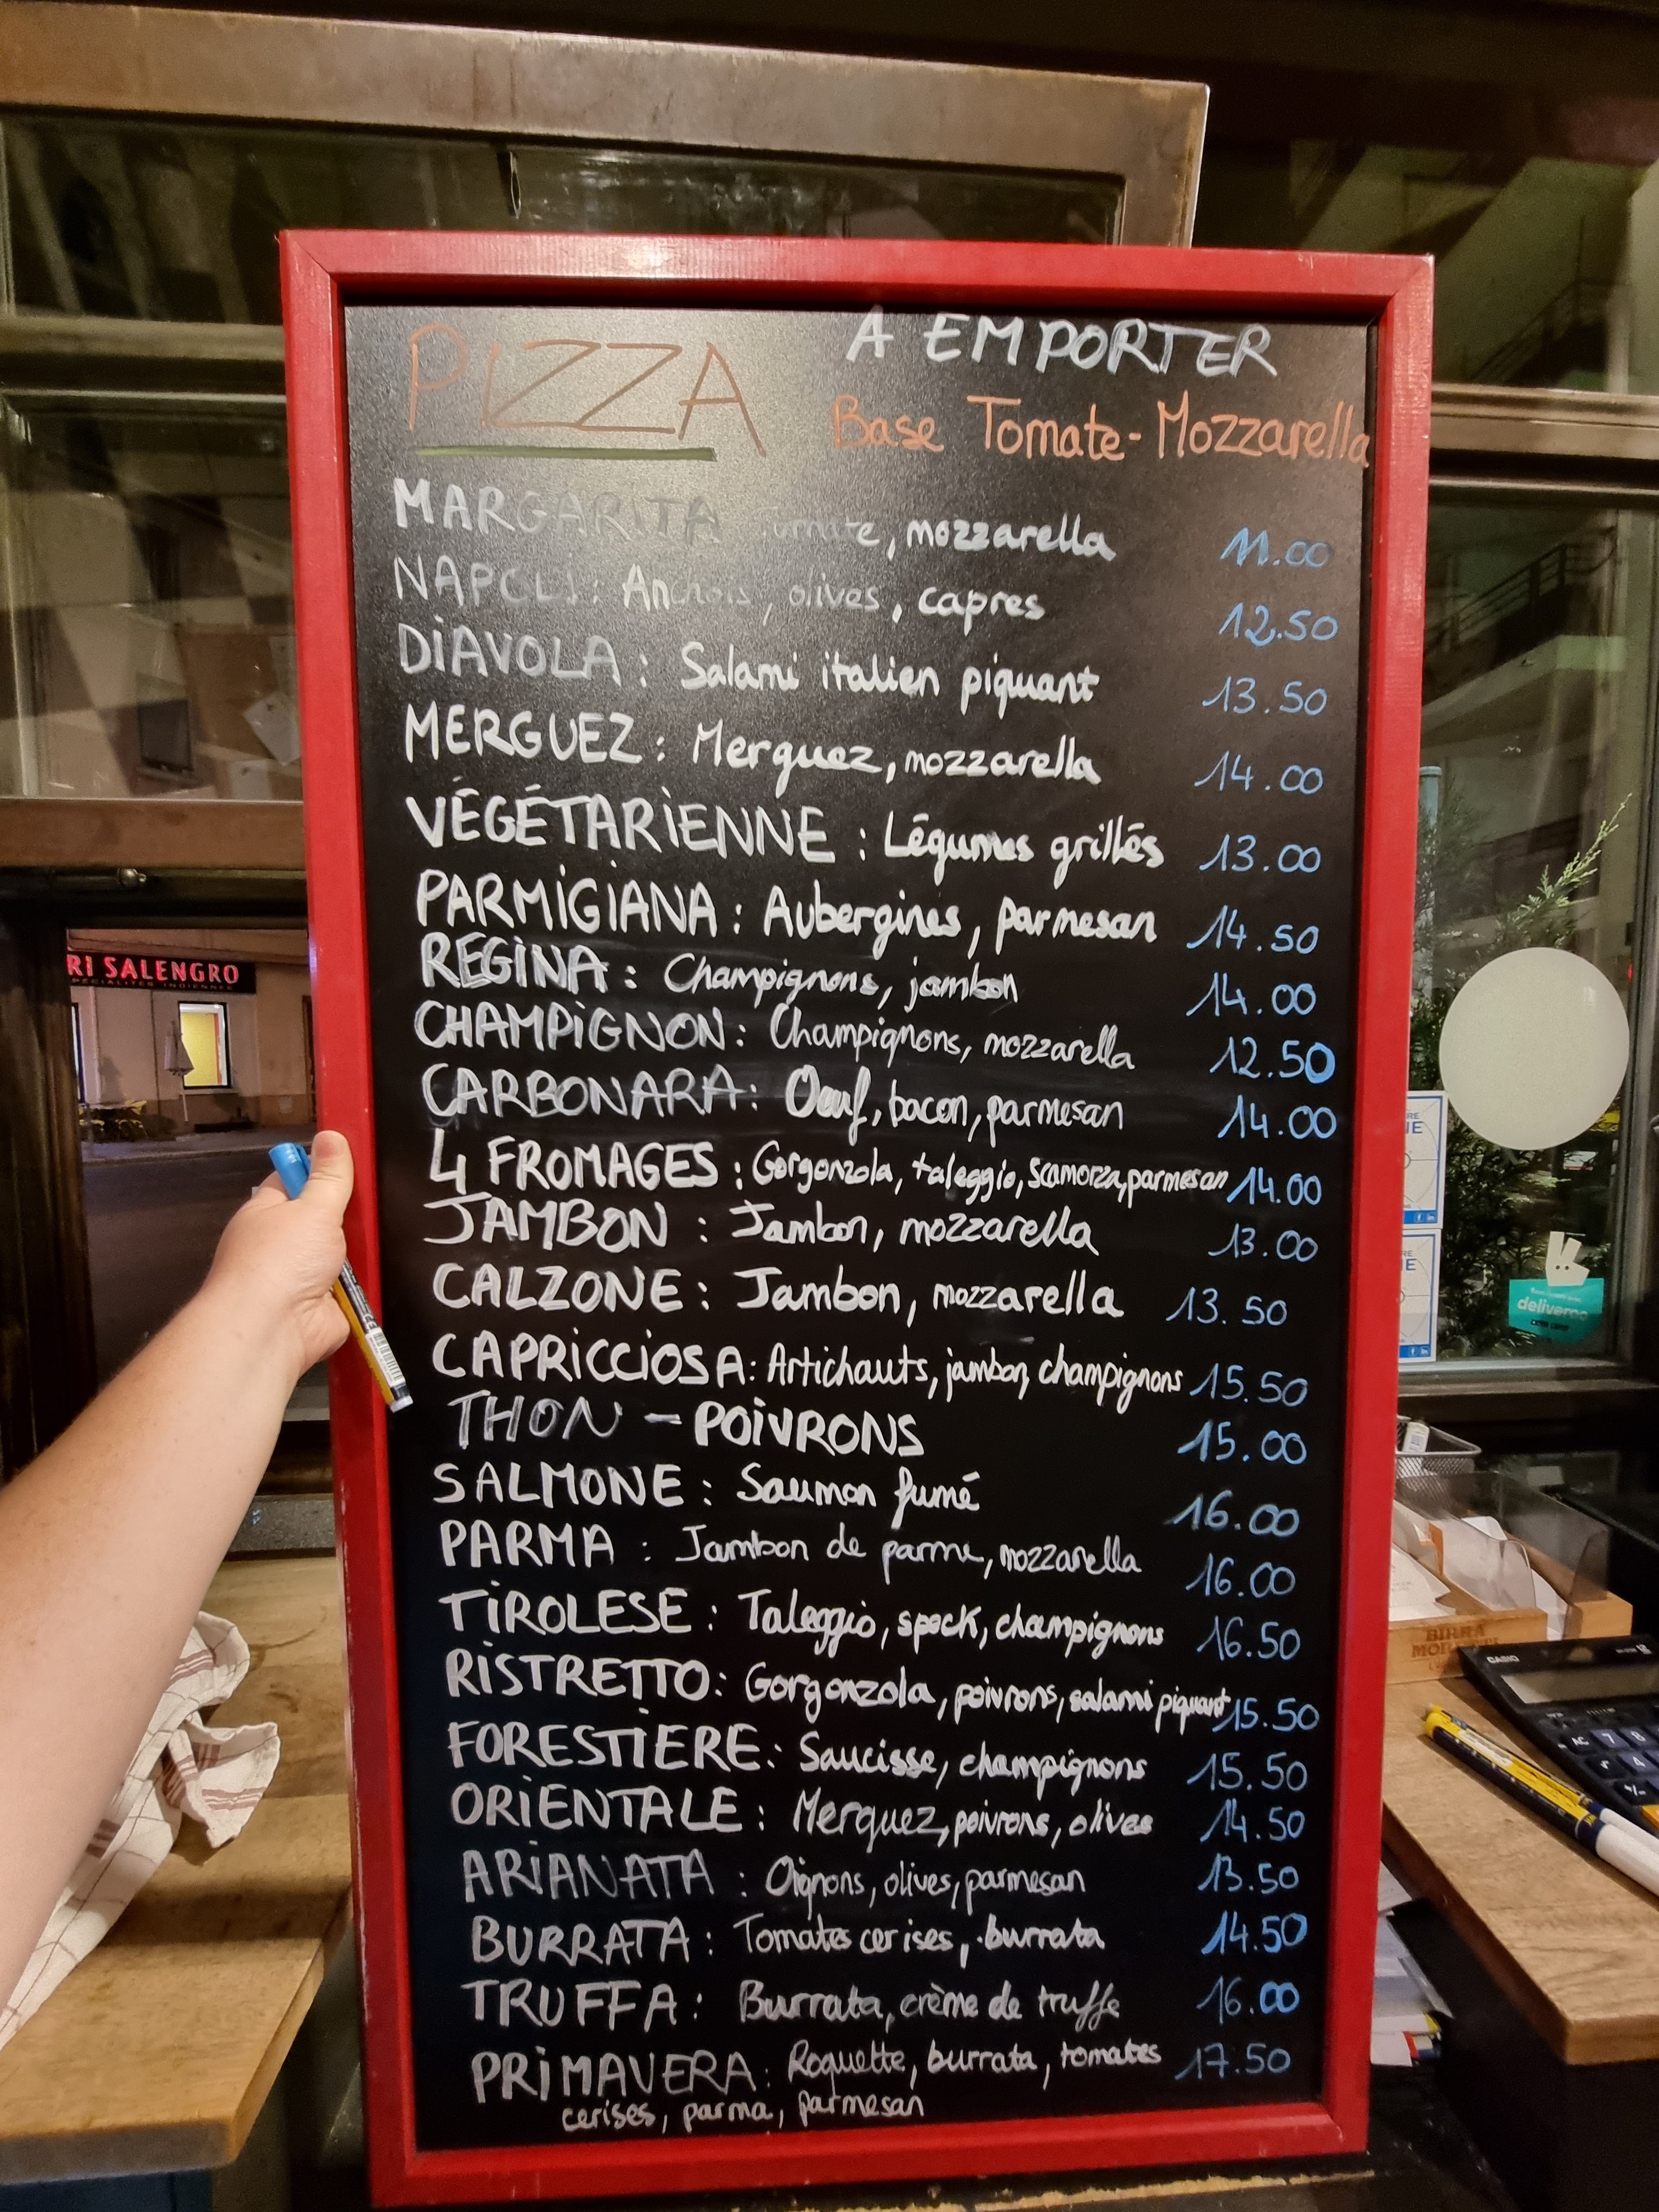 PIZZA
A EMPORTER
Base Tomate-Mozzarella
MARGARITA tomate, mozzarella 11.00
NAPOLI: Anchois, olives, capres 12.50
DIAVOLA: Salami italien piquant 13.50
MERGUEZ: Merguez, mozzarella 14.00
VÉGÉTARIENNE: Légumes grillés 13.00
PARMIGIANA: Aubergines, parmesan 14.50
REGINA: Champignons, jambon 14.00
CHAMPIGNON: Champignons, mozzarella 12.50
CARBONARA: Oeuf, bacon, parmesan 14.00
4 FROMAGES: Gorgonzola, taleggio, scamorza, parmesan 14.00
JAMBON: Jambon, mozzarella 13.00
CALZONE: Jambon, mozzarella 13.50
CAPRICCIOSA: Artichauts, jambon, champignons 15.50
THON - POIVRONS 15.00
SALMONE: Saumon fumé 16.00
PARMA: Jambon de parme, mozzarella 16.00
TIROLESE: Taleggio, speck, champignons 16.50
RISTRETTO: Gorgonzola, poivrons, salami piquant 15.50
FORESTIERE: Saucisse, champignons 15.50
ORIENTALE: Merguez, poivrons, olives 14.50
ARIANATA: Oignons, olives, parmesan 13.50
BURRATA: Tomates cerises, burrata 14.50
TRUFFA: Burrata, crème de truffe 16.00
PRIMAVERA: Roquette, burrata, tomates 17.50
cerises, parma, parmesan
RI SALENGRO
SPECIALITES INDIENNES
deliveroo
BIRRA
CASIO